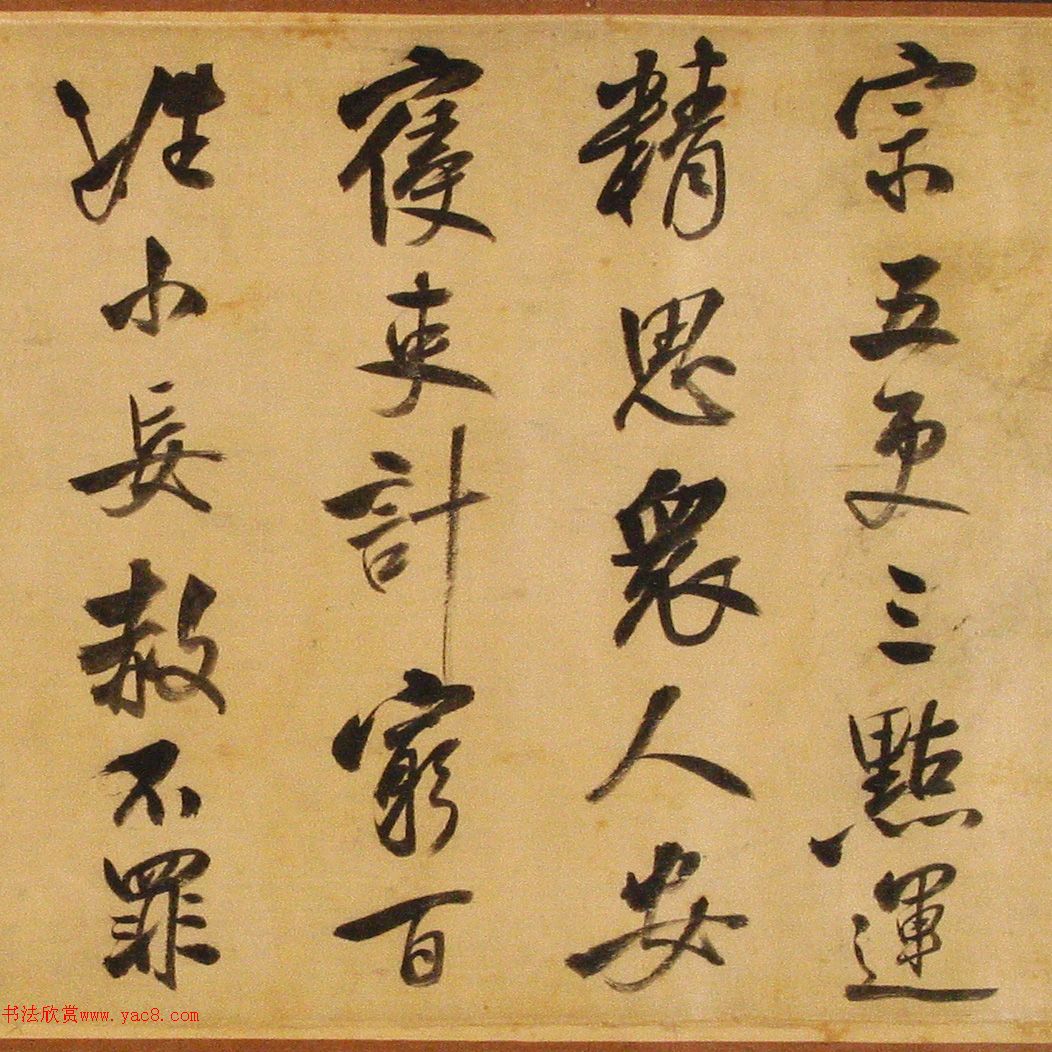 宗五更三點運
精思衆人安
寢吏計窮百
姓小妄赦不罪
书法欣赏www.yac8.com